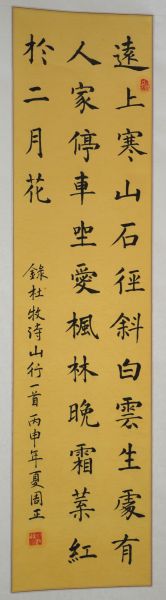 遠上寒山石徑斜白雲生處有
人家停車坐愛楓林晚霜葉紅
於二月花
錄杜牧诗山行一首丙申年夏周正